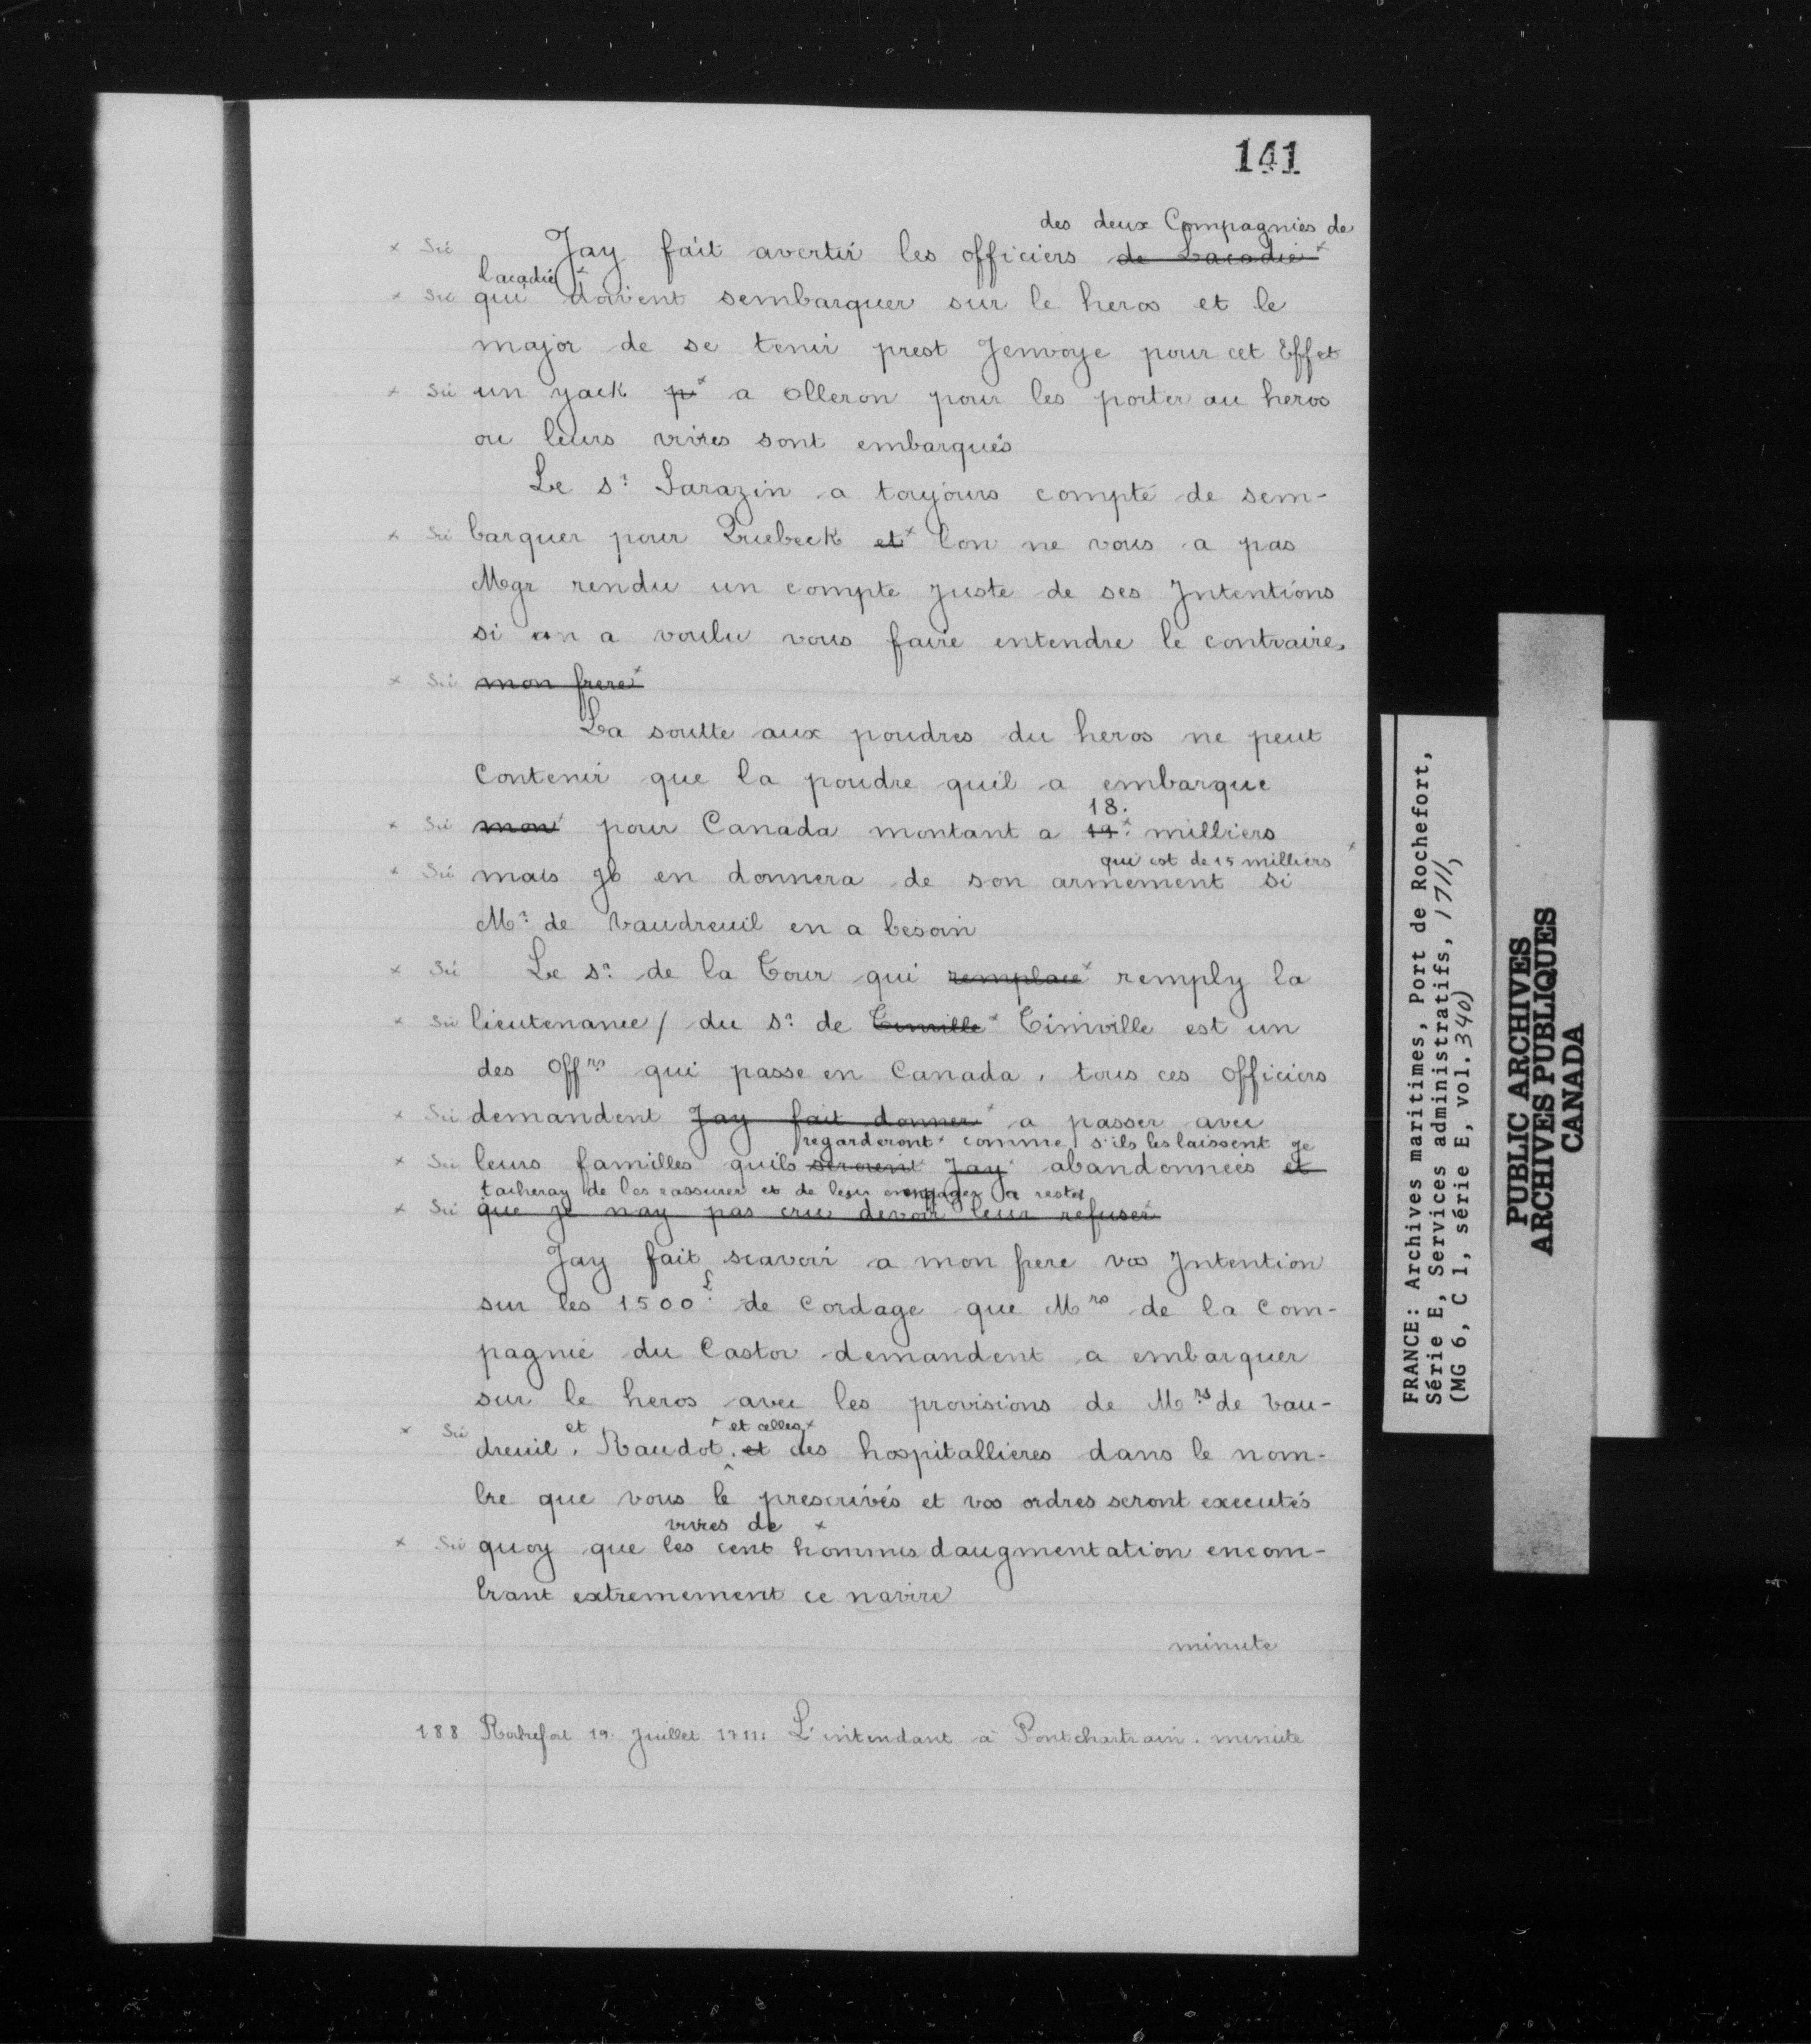 141
des deux Compagnies de
x Sic Jay fait avertir les officiers de Lacadie x
lacadie x
x Sic qui doivent sembarquer sur le heros et le
major de se tenir prest Jenvoye pour cet Effet
x Sic un yack pr x a olleron pour les porter au heros
ou leurs vivres sont embarqués
Le Sr Sarazin a toujours compté de sem-
x Sic barquer pour Quebeck et x lon ne vous a pas
Mgr rendu un compte Juste de ses Intentions
si on a voulu vous faire entendre le contraire,
x Sic mon frere x
La soutte aux poudres du heros ne peut
Contenir que la poudre quil a embarque
18.
x Sic mon x pour Canada montant a 19 x milliers
qui est de 15 milliers x
x Sic mais Jl en donnera de son armement si
Mr de Vaudreuil en a besoin
x Sic Le Sr de la Tour qui remplace x remply la
x Sic lieutenance / du Sr de x Tinville est un
des Offrs qui passe en Canada, tous ces officiers
x Sic demandent Jay fait donner x a passer avec
regarderont x comme s'ils les laissent Je
x Sic leurs familles quils seroient Jay x abandonnées et
tacheray de les rassurer et de les engager a rester
x Sic que je nay pas cru devoir leur refuser x
Jay fait scavoir a mon frere vos Intention
sur les 1500 £ de Cordage que Mrs de la Com-
pagnie du Castor demandent a embarquer
sur le heros avec les provisions de Mrs de Vau-
et et celles x
x Sic dreuil, Raudot, et des hospitallieres dans le nom-
bre que vous le prescrivés et vos ordres seront executés
vivres de x
x Sic quoy que les cent hommes daugmentation encom-
brant extremement ce navire
minute
188 Rochefort 19. Juillet 1711: L'intendant à Pontchartrain. minute
FRANCE: Archives maritimes, Port de Rochefort,
Série E, Services administratifs, 1711,
(MG 6, C 1, série E, vol. 340)
PUBLIC ARCHIVES
ARCHIVES PUBLIQUES
CANADA